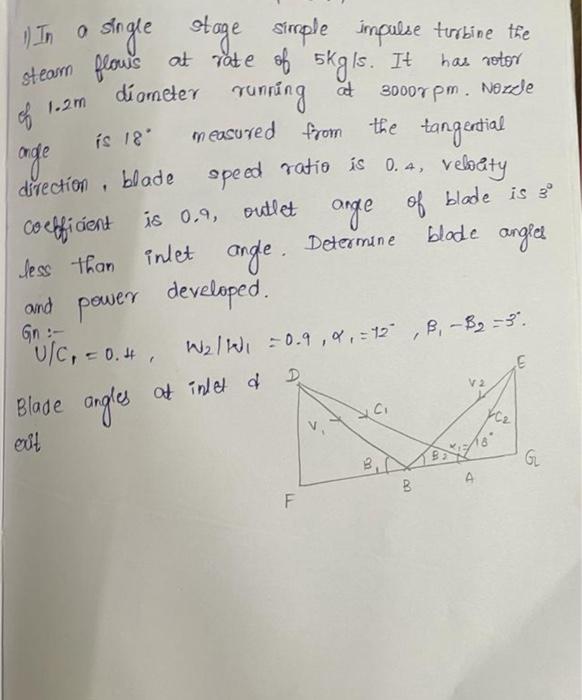 1) In a single stage simple impulse turbine the
steam flows at rate of 5kg/s. It has rotor
of 1.2m diameter running at 3000rpm. Nozzle
angle is 18° measured from the tangential
direction, blade speed ratio is 0.4, velocity
coefficient is 0.9, outlet angle of blade is 3°
less than inlet angle. Determine blade angles
and power developed.
Gn :-
U/C₁ = 0.4, W2/W1 = 0.9, α₁ = 12°, β₁ - β₂ = 3°.
Blade angles at inlet &
exit
D
E
V₁
C₁
V2
C2
β₁
β₂
α₁ = 18°
F
B
A
G